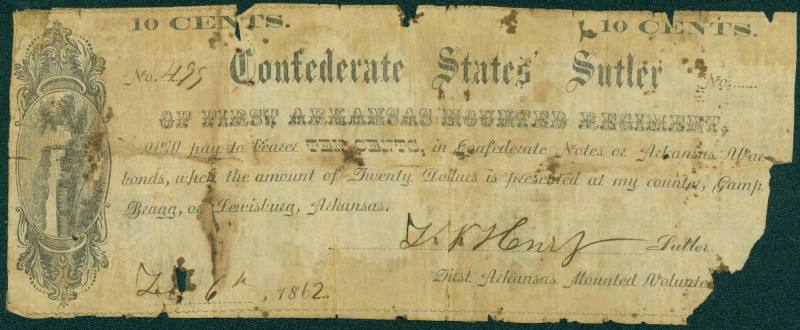 10 CENTS. 10 CENTS.
No. 499 Confederate States' Sutler No.
OF FIRST ARKANSAS MOUNTED REGIMENT,
Will pay to bearer TEN CENTS, in Confederate Notes or Arkansas War
bonds, when the amount of Twenty Dollars is presented at my counter, Camp
Bragg, or Lewisburg, Arkansas.
Henry Sutler
6th, 1862. First Arkansas Mounted Voluntee